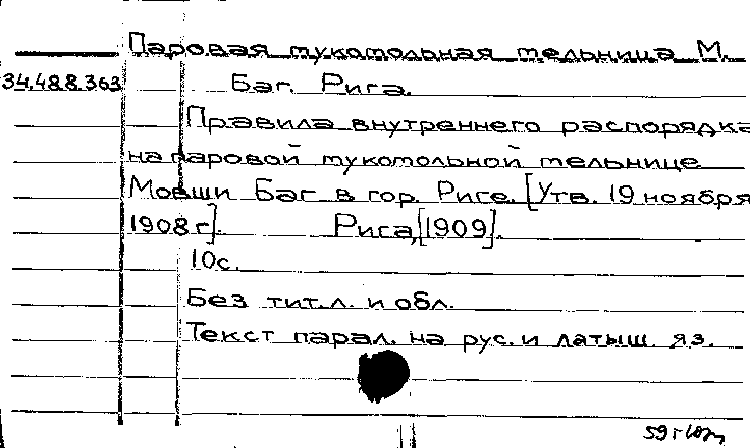 Паровая мукомольная мельница М.
34.488.363 Баг. Рига.
Правила внутреннего распорядка
на паровой мукомольной мельнице
Мовши Баг в гор. Риге. [Утв. 19 ноября
1908 г]. Рига, [1909].
10с.
Без тит.л. и обл.
Текст парал. на рус. и латыш. яз.